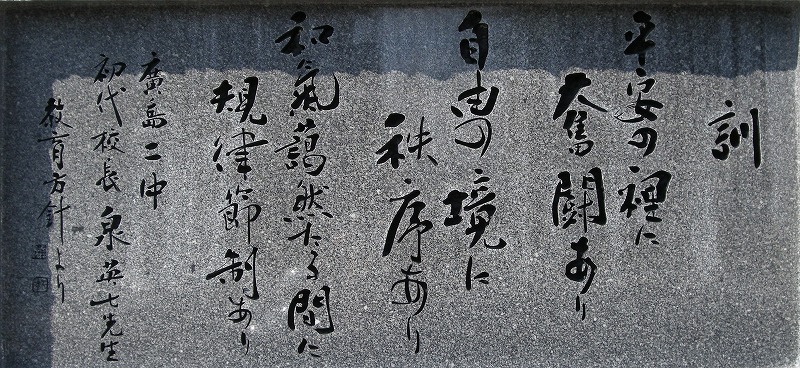 訓
平安の裡に
奮闘あり
自由の境に
秩序あり
和氣藹然たる間に
規律節制あり
廣島二中
初代校長 泉英七先生
教育方針より